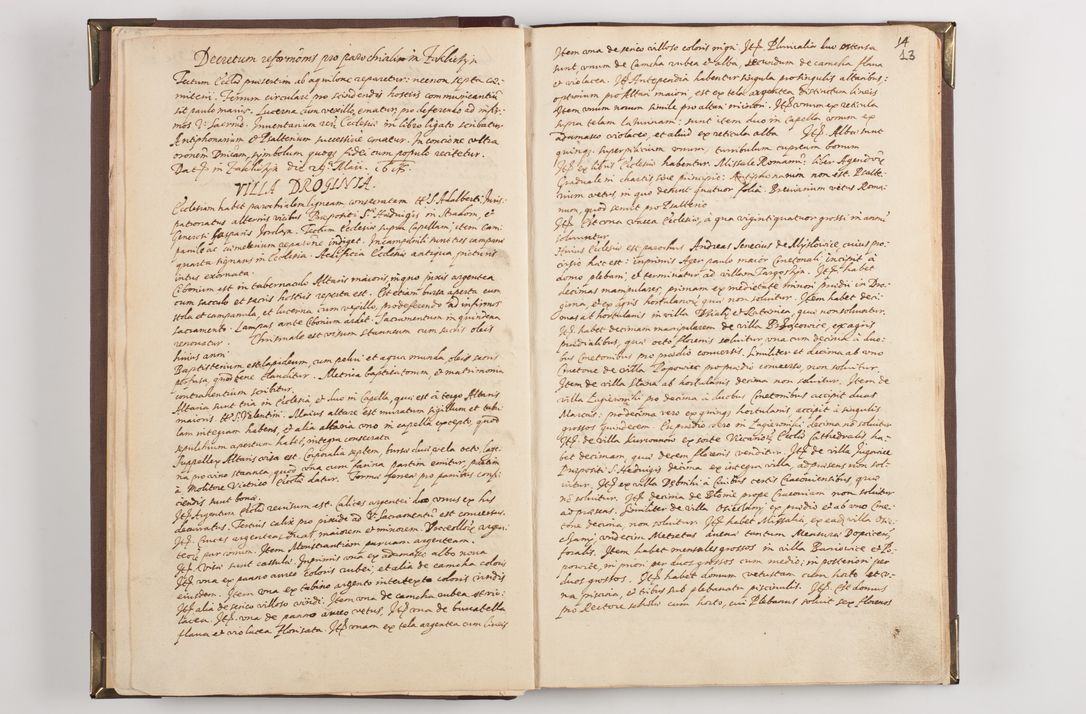 Decretum reformõnis pro parochiali in
Tectum Eccliæ præsertim ab aquilone reparetur: necnon septa cœ-
miterii. Ferrum circulare pro scindendis hostiis communicantiũ
sit paulo maius. Lucerna cum vexillo ematur pro deferendo ad infir-
mos Vo Sacramto. Inventarium rerũ Ecclesiæ in libro ligato scribatur
Antiphonarium et Psalterium successive ematur. In concione ultra
orõnem Dnicam, symbolum quoque fidei cum populo recitetur.
Dat. in die Maii.
VILLA DROGINIA.
Ecclesiam habet parochialem ligneam consecratam tt. S. Adalberti Juris-
patronatus alternis vicibus Præpositi S. Hedvigis in Stradom, et
Generosi Gasparis Jordan. Tectum Ecclesiæ supra Capellam, item cam-
panile ac cœmeterium reparatione indiget. In campanili sunt tres campanæ
quarta signans in Ecclesia. Aedificia Ecclesiæ antiqua, picturis
intus exornata.
Ciborium est in tabernaculo Altaris maioris, in quo pixis argentea
cum sacculo et sacris hostiis reperta est. Est etiam bursa aperta cum
stola et campanula, et lucerna cum vexillo, pro deferendo ad infirmos
Sacramento. Lampas ante Ciborium ardet. Sacramentum in quindena
renovatur. Chrismale est visum stanneum cum sacris oleis
huius anni.
Baptisterium est lapideum, cum pelvi et aqua munda, oleis sacris
perfusa, quod bene clauditur. Metrica baptizatorum, et matrimonia
contrahentium scribitur.
Altaria sunt tria in Ecclesia et duo in Capella, qui est à tergo Altaris
maioris tt. S. Valentini. Maius altare est muratum sigillum et tabu-
lam integram habens, et alia altaria uno in capella excepto, quod
sepulchrum apertum habet, integra consecrata
Suppellex Altaris visa est. Corporalia septem, bursæ duæ, vela octo, Cape-
na pro vino stannea, quod una cum farina partim emitur, partim
à Molitore Vietnico Ecclæ datur. Forma ferrea pro panibus confi-
ciendis sunt bona.
Itẽ Argentum Eccliæ revisum est. Calices argentei duo unus ex his
deauratus. Tertius calix pro pixide ad Vo Sacramentũ est conversus.
Itẽ. Cruces argenteas duas, maiorem et minorem. Urceollos argen-
teos par unum. Item Monstrantiam parvam argenteam.
Itẽ Visæ sunt casulæ. Inprimis una ex adamasco albo nova
Itẽ una ex panno aureo coloris rubei, et alia de camcha coloris
eiusdem. Item una ex tabino argento intertexto coloris viridis
Itẽ alia de serico villoso viridi. Item una de camcha rubea seri-
lacea. Itẽ una de panno aureo vetus, Itẽ una de burcatella
flava et violacea florisata. Itẽ unam ex tela argentea cum lineis
14
13
Item una de serico villoso coloris nigri. Itẽ Pluvialia duo ostensa
sunt, unum de Camcha rubea et alba, secundum de camcha flava
et violacea. Itẽ Antependia habentur singula pro singulis altaribus:
optimum pro Altari maiori, est ex tela argentea distinctum lineis
Item unum novum simile pro altari minori. Itẽ unum ex reticula
supra telam lazurinam: sunt item duo in Capella, unum ex
adamasco violaceo, et aliud ex reticula alba. Itẽ. Albæ sunt
quinque, superpellicium unum, turribulum cupreum bonum
Itẽ ex libris Ecclesiæ habentur. Missale Romanũ: liber Agendorũ
Graduale in chartis sive principiè: Antiphonarium non est. Psalte-
rium vetus, in quo desunt quatuor folia. Breviarium vetus Roma-
num, quod servit pro Psalterio
Itẽ Est una vacca Ecclesiæ, à qua viginti quatuor grossi in anno
solvuntur.
Huius Ecclesiæ est parochus Andreas Senecius de Myslowice cuius pro-
visio hæc est: inprimis Ager paulo maior Cmetonali incipit à
domo plebani, et terminatur ad villam Targoszyn. Itẽ habet
decimas manipulares primam ex medietate minori prædii in Dro-
ginia, et ex agris hortulanorũ quæ non solvitur. Item habet deci-
mas ab hortulanis in villa Działy et Lutonica, quæ non solvuntur.
Itẽ. habet decimam manipularem de villa Brzęczowice, ex agris
prædialibus, quæ octo florenis solvitur una cum decima à duo-
bus Cmetonibus pro prædio conversis. Similiter et decima ab uno
Cmetone de villa Poponice pro prædio converso non solvitur.
Item de villa Stasia ab hortulanis decima non solvitur. Item de
villa Zupierniki pro decima à duobus Cmetonibus accipit duas
Marcas: pro decima vero ex quinque hortulanis accipit à singulis
grossos quindecem. Ex prædio vero in Zagiernicki decima nõ solvitur
Itẽ. de villa Surovaniow ex sorte Vicariorũ Ecclæ Cathedralis ha-
bet decimam, quæ decem florenis venditur. Itẽ de villa Jugowice
Præpositi S. Hedvigis decima ex integra villa, ad præsens non sol-
vitur. Itẽ ex villa Debniki à Civibus certis Cracoviensibus quæ
nõ solvitur. Itẽ decima de Błonie prope Cracoviam non solvitur
ad præsens. Similiter de villa ex prædio et ab uno Cme-
tone decima, non solvitur. Itẽ habet Missalia, ex eadẽ villa Osie-
czany undecim Metretas avenæ tantum Mensura Dobcicen.
foralis. Item habet mensales grossos in villa Banowice et Po-
ponice, in priori per duos grossos cum medio; in posteriori per
duos grossos. Itẽ habet domum vetustam cum horto et v-
na piscina, et tribus sub plebanatu pisciculis. Itẽ Est domus
pro Rectore scholæ cum horto, cui Plebanus solvit sex florenos